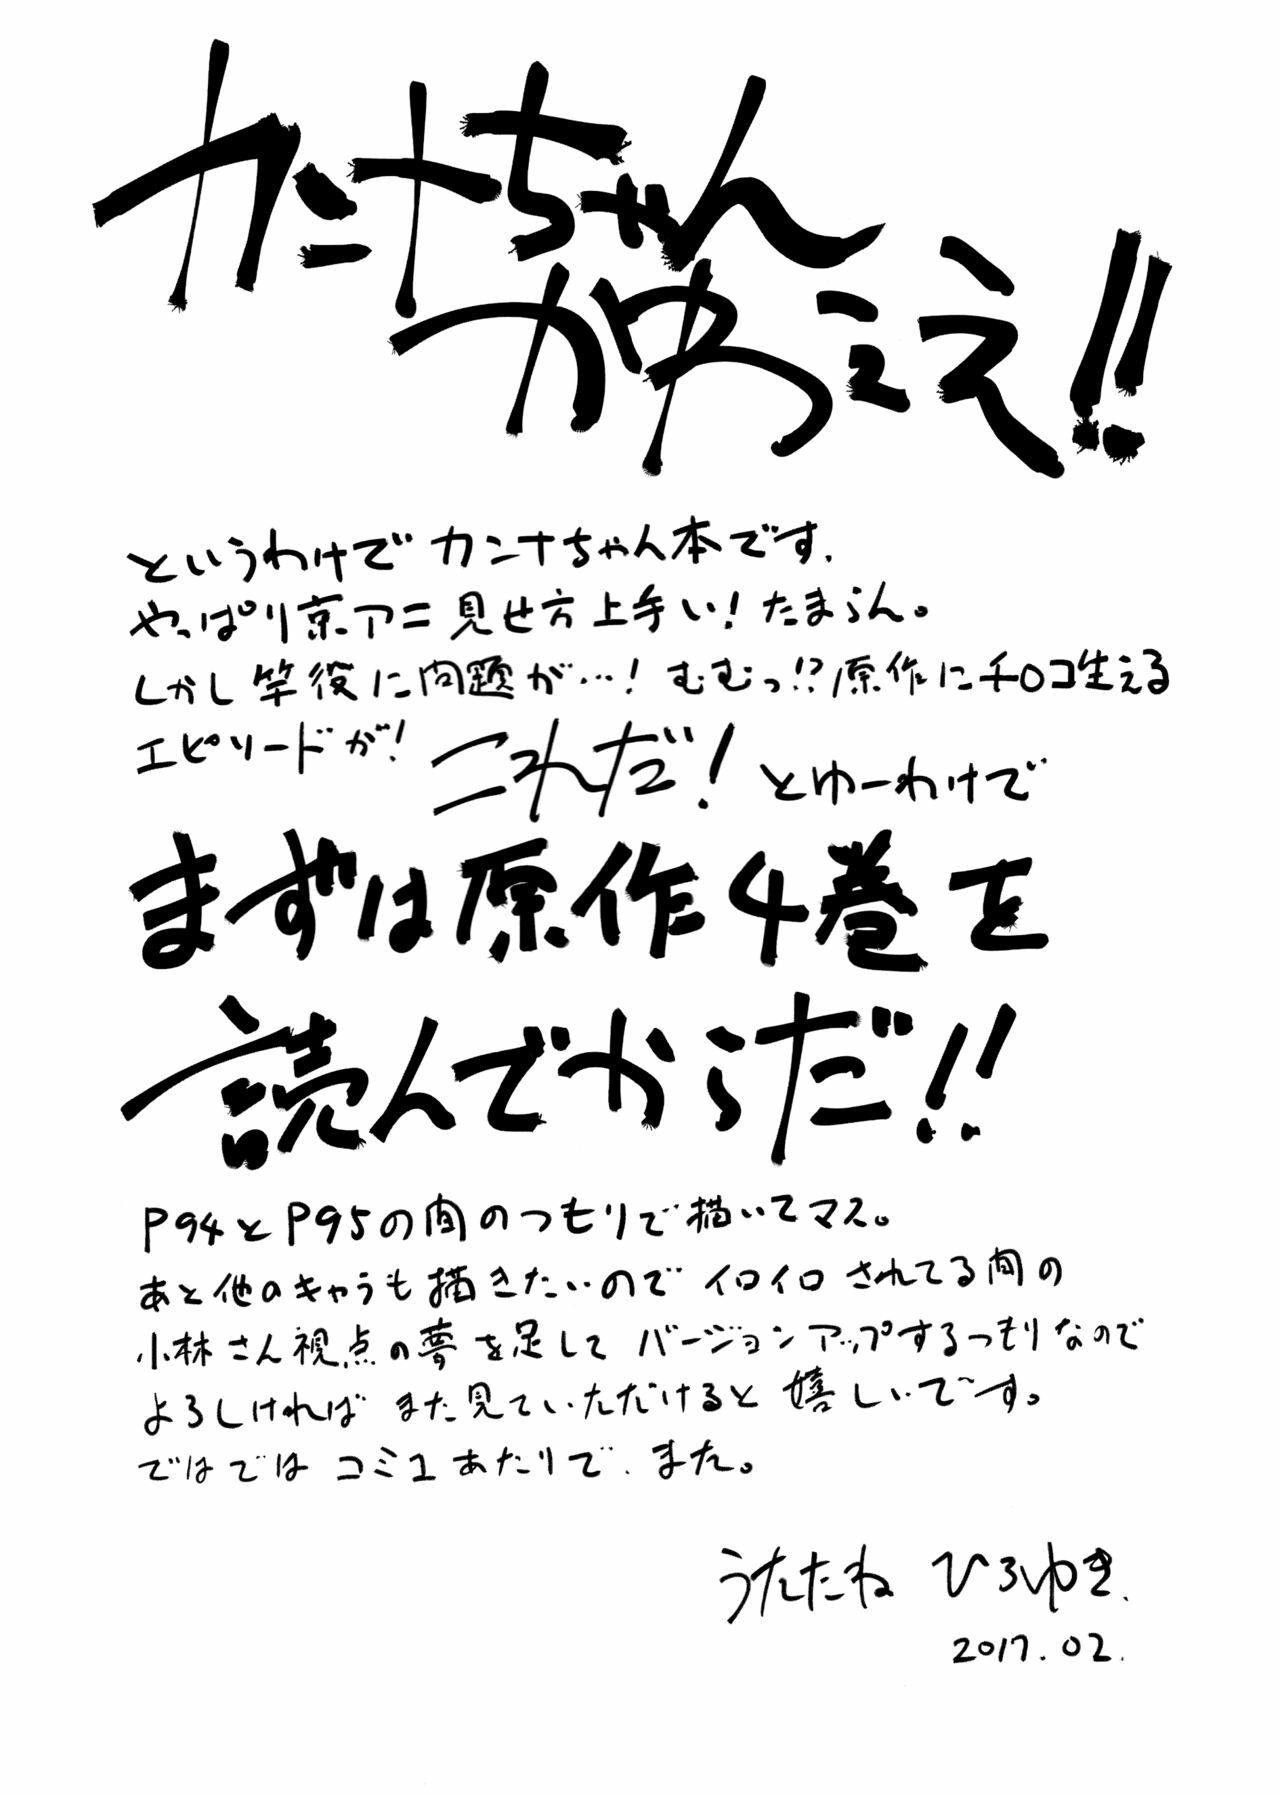 カンナちゃん
かゆぅええ!!
というわけで カンナちゃん本です.
やっぱり京アニ 見せ方上手い! たまらん。
しかし竿役に問題が…! むむっ!?原作にチロコ生える
エピソードが! これだ! とゆーわけで
まずは原作4巻を
読んでからだ!!
P94とP95の間のつもりで描いてマス。
あと他のキャラも描きたいのでイロイロされてる間の
小林さん視点の夢を足して バージョンアップするつもりなので
よろしければ また見ていただけると嬉しいで~す。
ではでは コミ1あたりで. また。
うたたね ひろゆき.
2017.02.